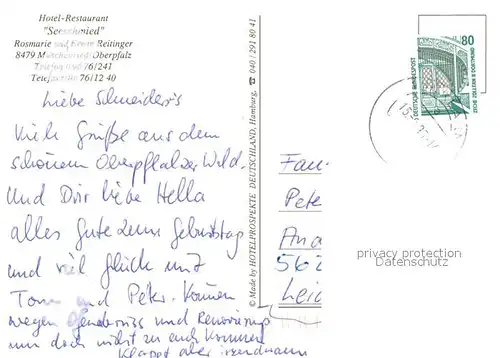 Hotel-Restaurant
"Seeschmied"
Rosmarie und Reitinger
8479 Oberpfalz
Telefon 76/241
Telefax 76/12 40
Liebe Schneider's
Viele Grüße aus dem
schönen Oberpfalzer Wald.
Und Dir liebe Hella
alles Gute zum Geburtstag
und viel Glück mit
Tom und Peter. Können
wegen und Renovierung
nun doch nicht zu euch kommen
Klappt aber irgendwann
© Made by HOTELPROSPEKTE DEUTSCHLAND, Hamburg, ☎ 040/291 80 41
80
DEUTSCHE BUNDESPOST
ZECHE ZOLLERN II DORTMUND
Fam
Pete
Ana
562
Leic
privacy protection
Datenschutz